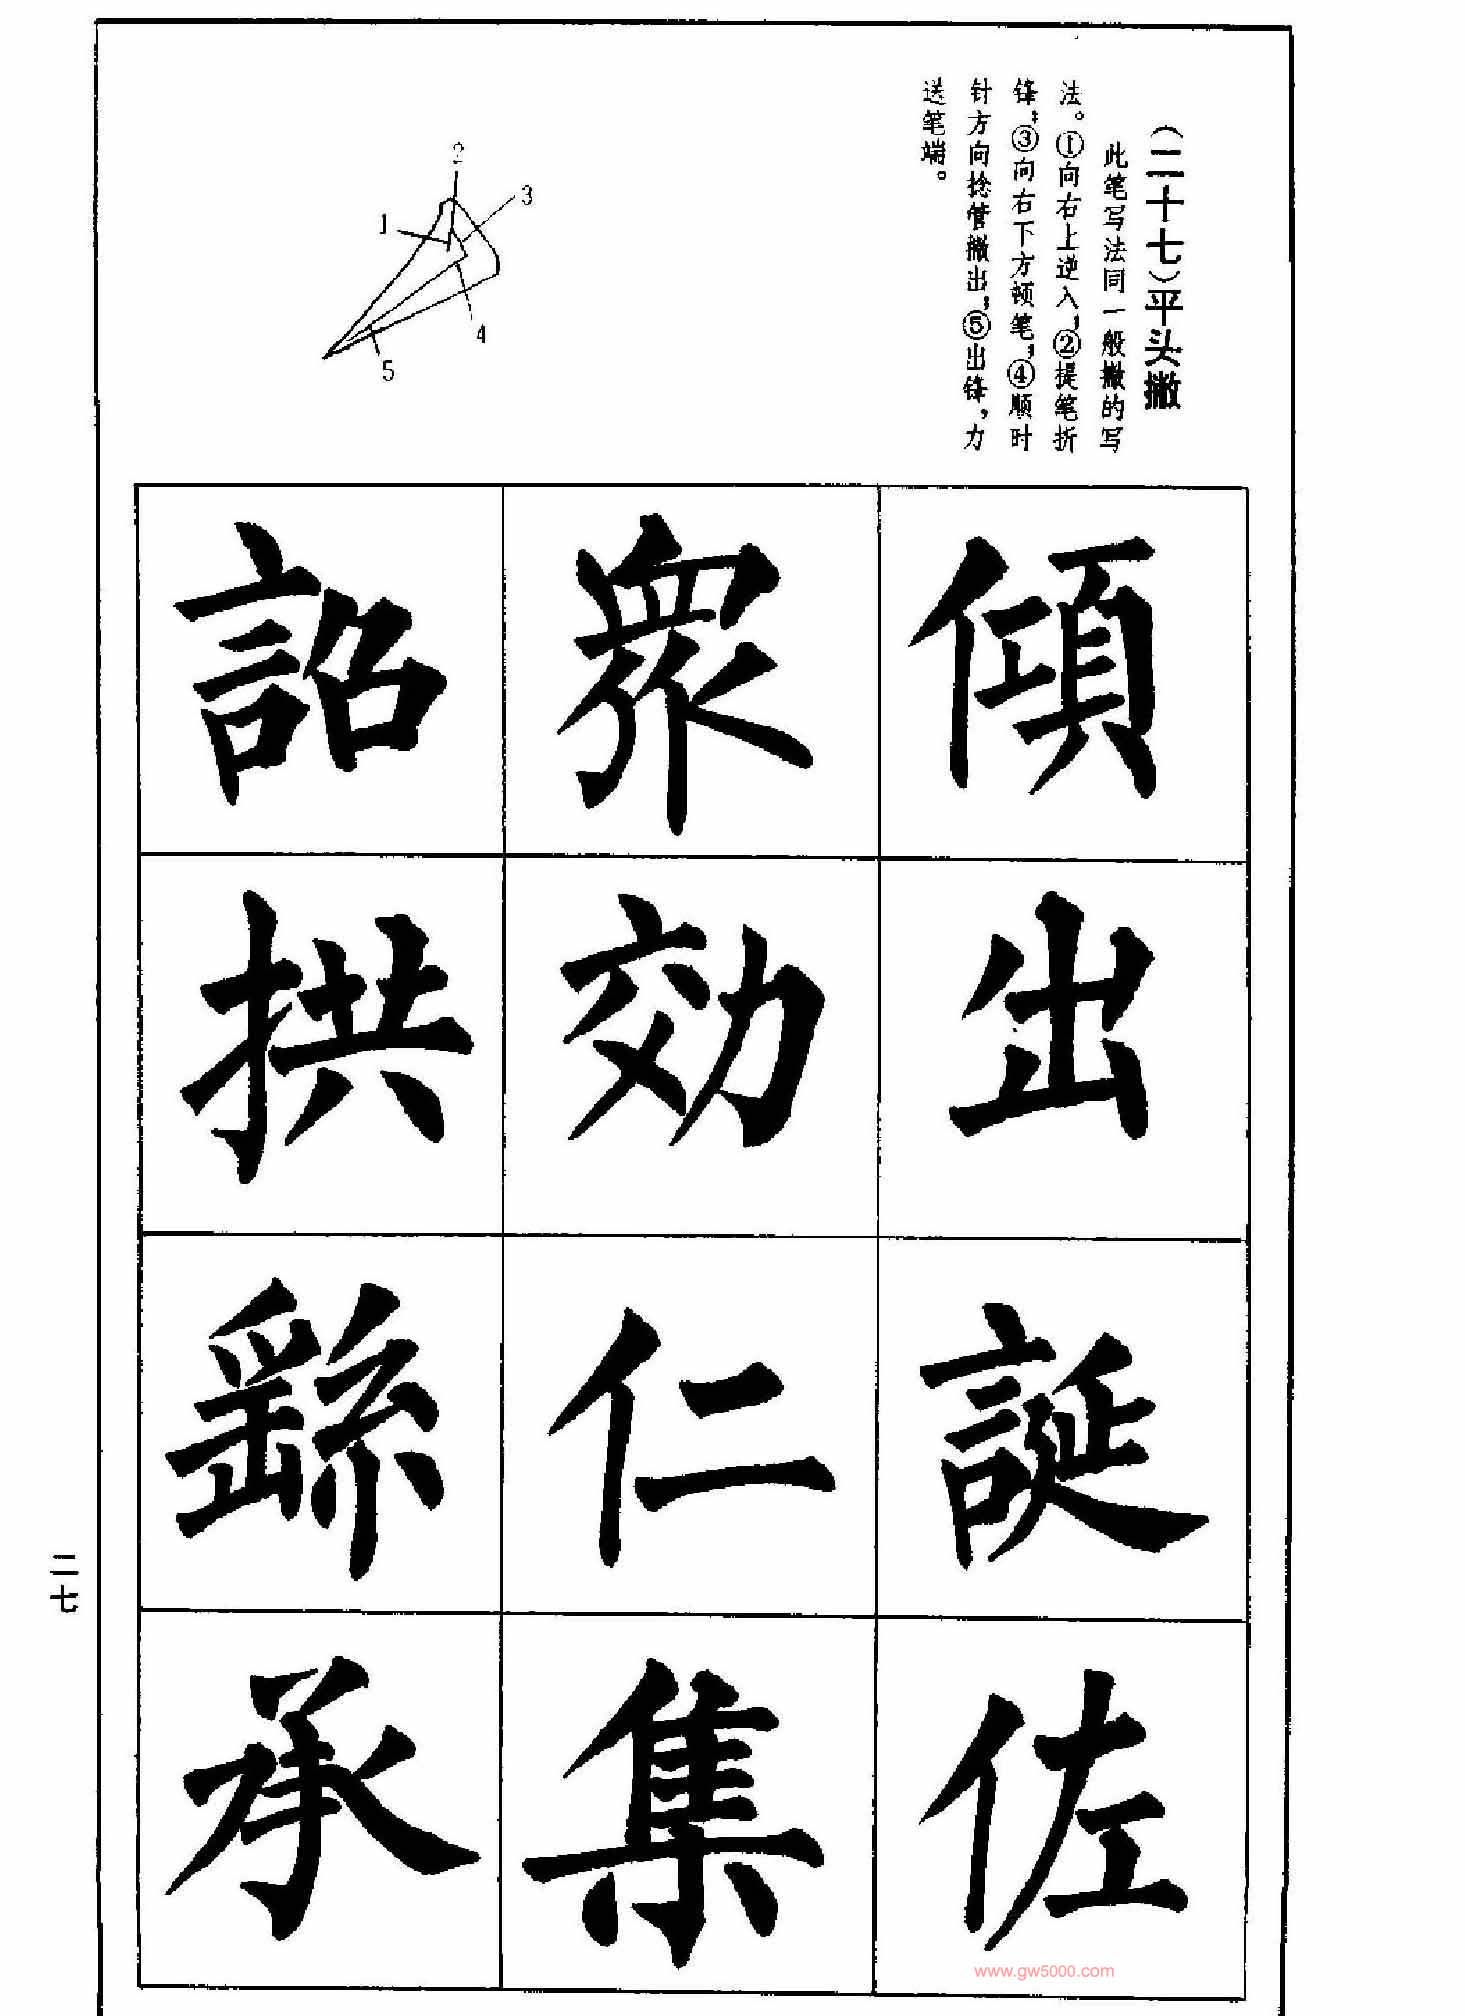 (二十七)平头撇
此笔写法同一般撇的写
法。①向右上逆入;②提笔折
锋;③向右下方顿笔;④顺时
针方向捻管撇出;⑤出锋,力
送笔端。
2
3
1
4
5
傾出誕佐
衆効仁集
詔拱繇承
二七
www.gw5000.com